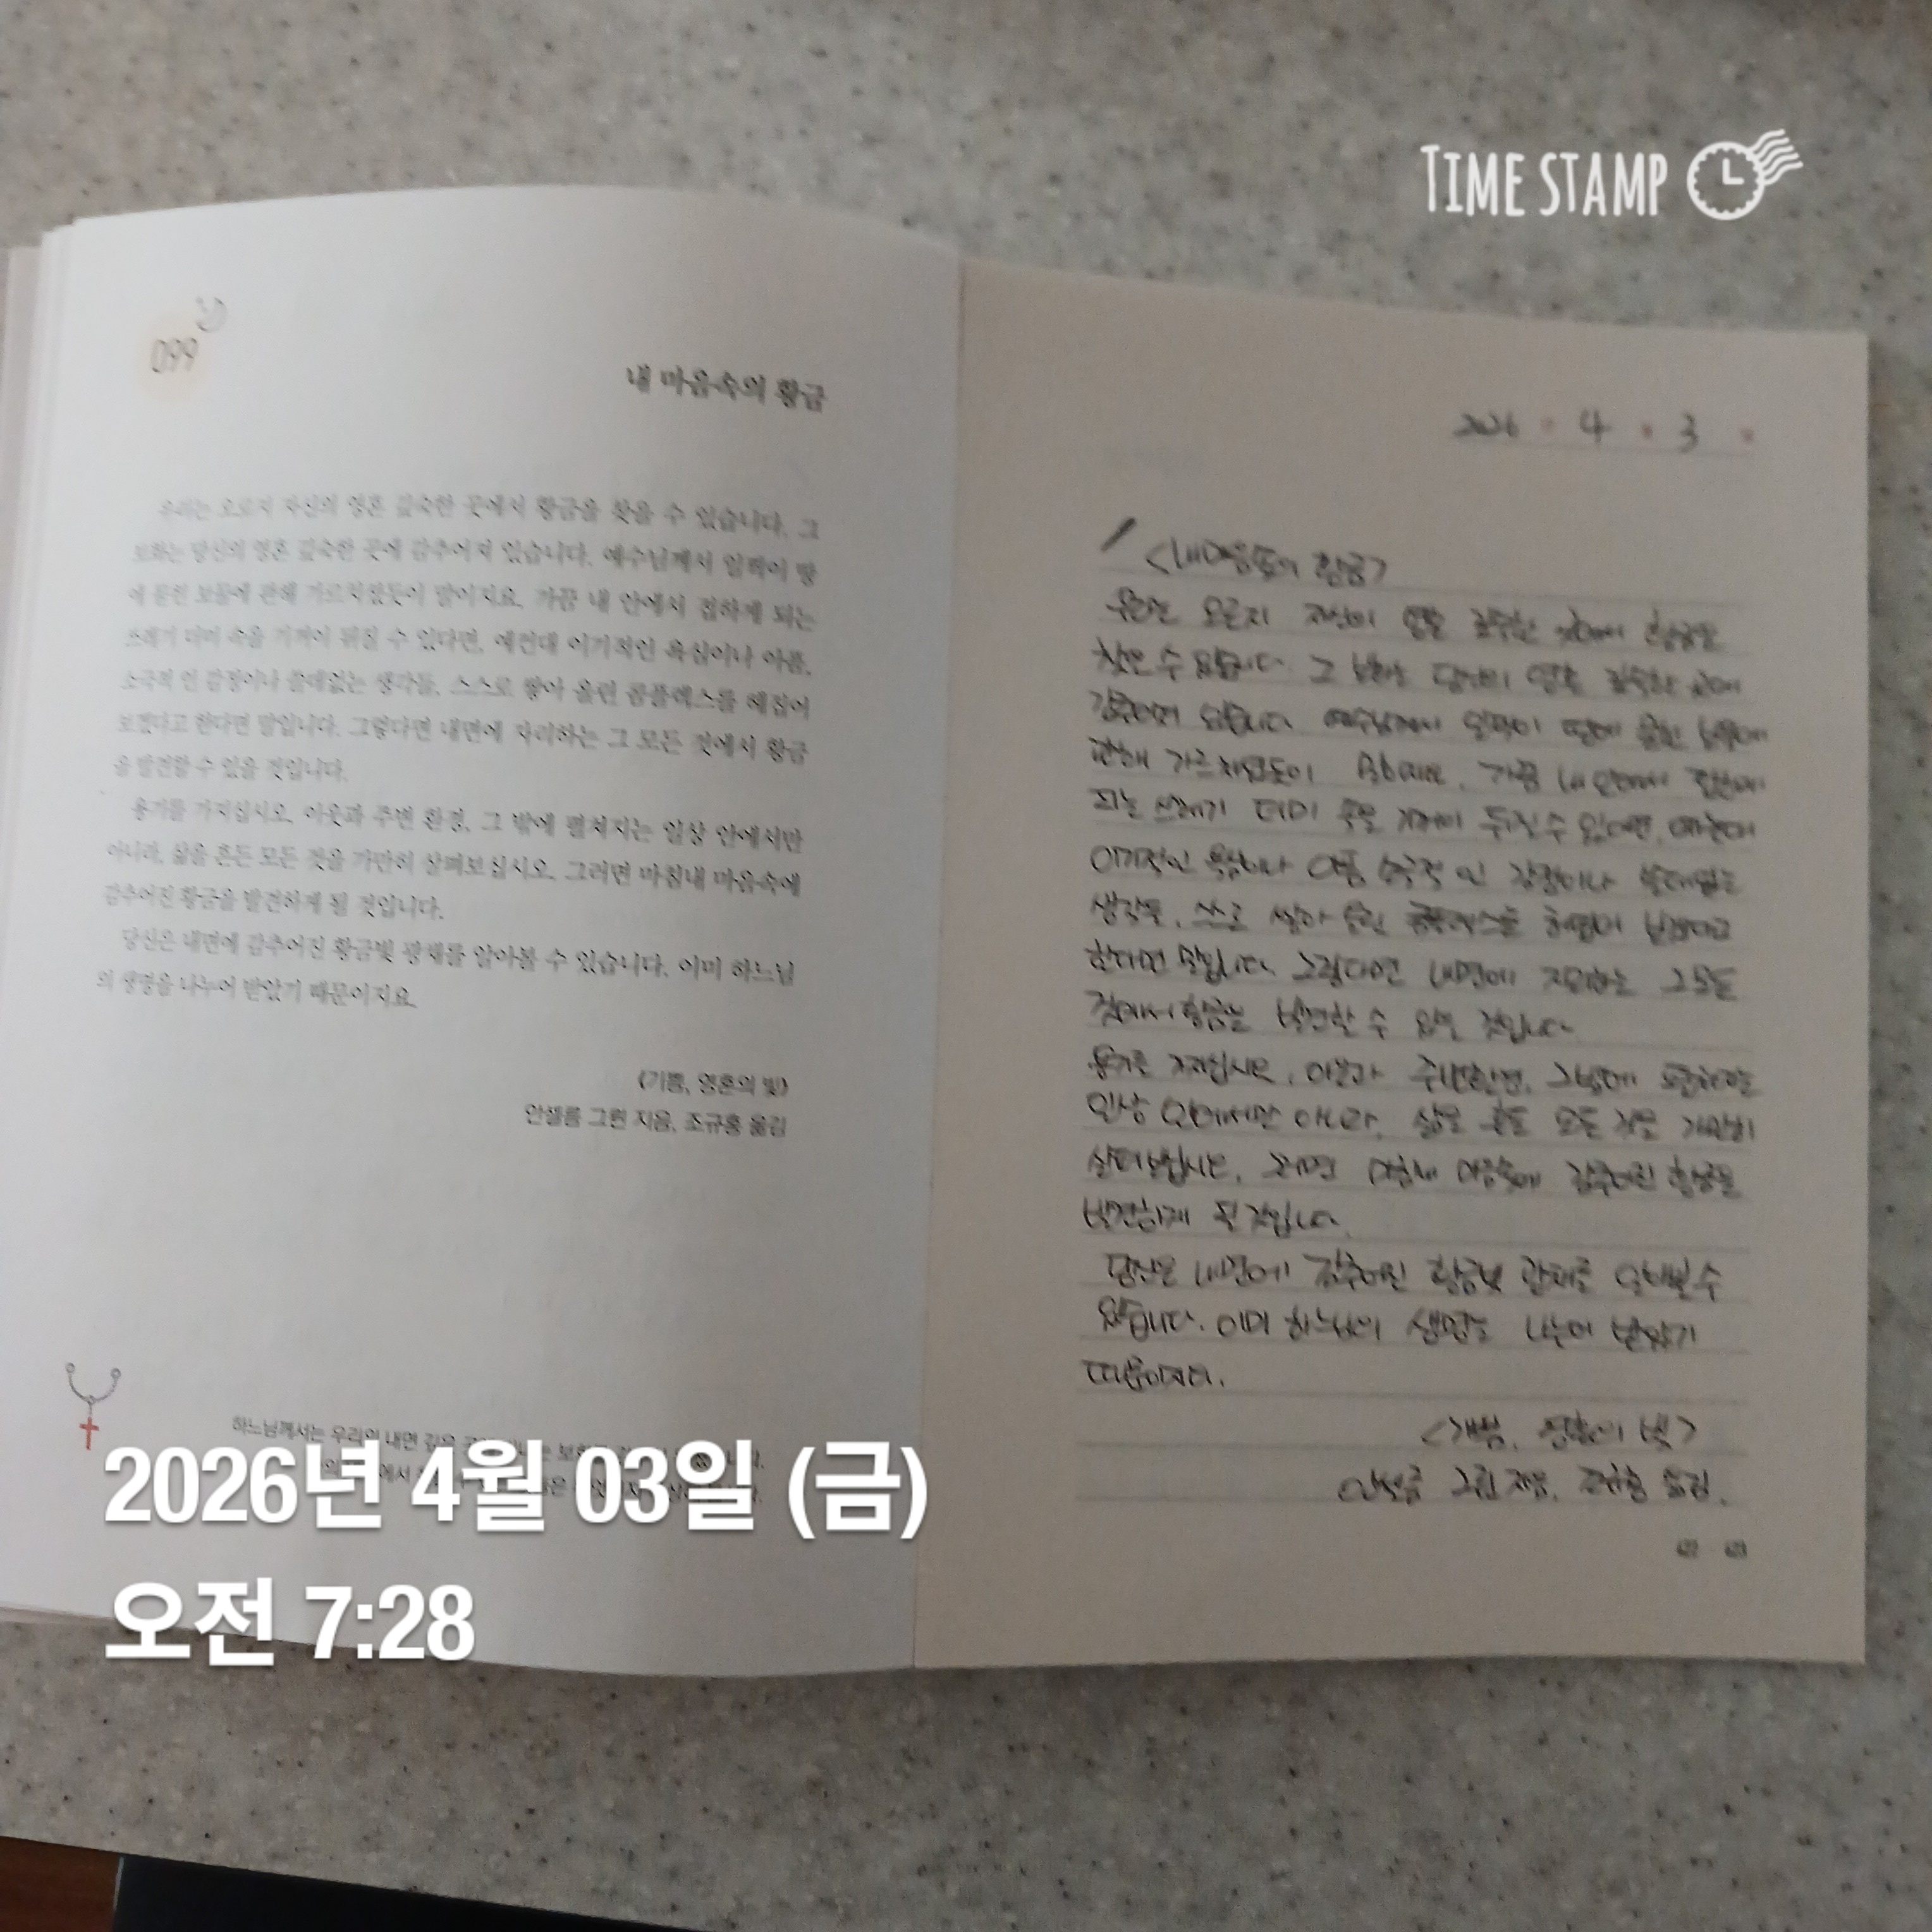 TIME STAMP
099
내 마음속의 황금
우리는 오로지 자신의 영혼 깊숙한 곳에서 황금을 찾을 수 있습니다. 그
보화는 당신의 영혼 깊숙한 곳에 감추어져 있습니다. 예수님께서 일찍이 땅
에 묻힌 보물에 관해 가르치셨듯이 말이지요. 가끔 내 안에서 접하게 되는
쓰레기 더미 속을 기꺼이 뒤질 수 있다면, 예컨대 이기적인 욕심이나 아픔,
소극적 인 감정이나 쓸데없는 생각들, 스스로 쌓아 올린 콤플렉스를 헤집어
보겠다고 한다면 말입니다. 그렇다면 내면에 자리하는 그 모든 것에서 황금
을 발견할 수 있을 것입니다.
용기를 가지십시오. 이웃과 주변 환경, 그 밖에 펼쳐지는 일상 안에서만
아니라, 삶을 흔든 모든 것을 가만히 살펴보십시오. 그러면 마침내 마음속에
감추어진 황금을 발견하게 될 것입니다.
당신은 내면에 감추어진 황금빛 광채를 알아볼 수 있습니다. 이미 하느님
의 생명을 나누어 받았기 때문이지요.
《기쁨, 영혼의 빛》
안셀름 그륀 지음, 조규홍 옮김
하느님께서는 우리의 내면 깊은
2026년 4월 03일 (금)
오전 7:28
2026 4 3
<내마음속의 황금>
우리는 오로지 자신의 영혼 깊숙한 곳에서 황금을
찾을 수 있습니다. 그 보화는 당신의 영혼 깊숙한 곳에
감추어져 있습니다. 예수님께서 일찍이 땅에 묻힌 보물에
관해 가르치셨듯이 말이지요. 가끔 내 안에서 접하게
되는 쓰레기 더미 속을 기꺼이 뒤질 수 있다면, 예컨대
이기적인 욕심이나 아픔 소극적 인 감정이나 쓸데없는
생각들, 스스로 쌓아 올린 콤플렉스를 헤집어 보겠다고
한다면 말입니다. 그렇다면 내면에 자리하는 그 모든
것에서 황금을 발견할 수 있을 것입니다
용기를 가지십시오. 이웃과 주변환경, 그밖에 펼쳐지는
일상 안에서만 아니라, 삶을 흔든 모든 것을 가만히
살펴보십시오. 그러면 마침내 마음속에 감추어진 황금을
발견하게 될 것입니다.
당신은 내면에 감추어진 황금빛 광채를 알아볼 수
있습니다. 이미 하느님의 생명을 나누어 받았기
때문이지요.
<기쁨, 영혼의 빛>
안셀름 그륀 지음, 조규홍 옮김.